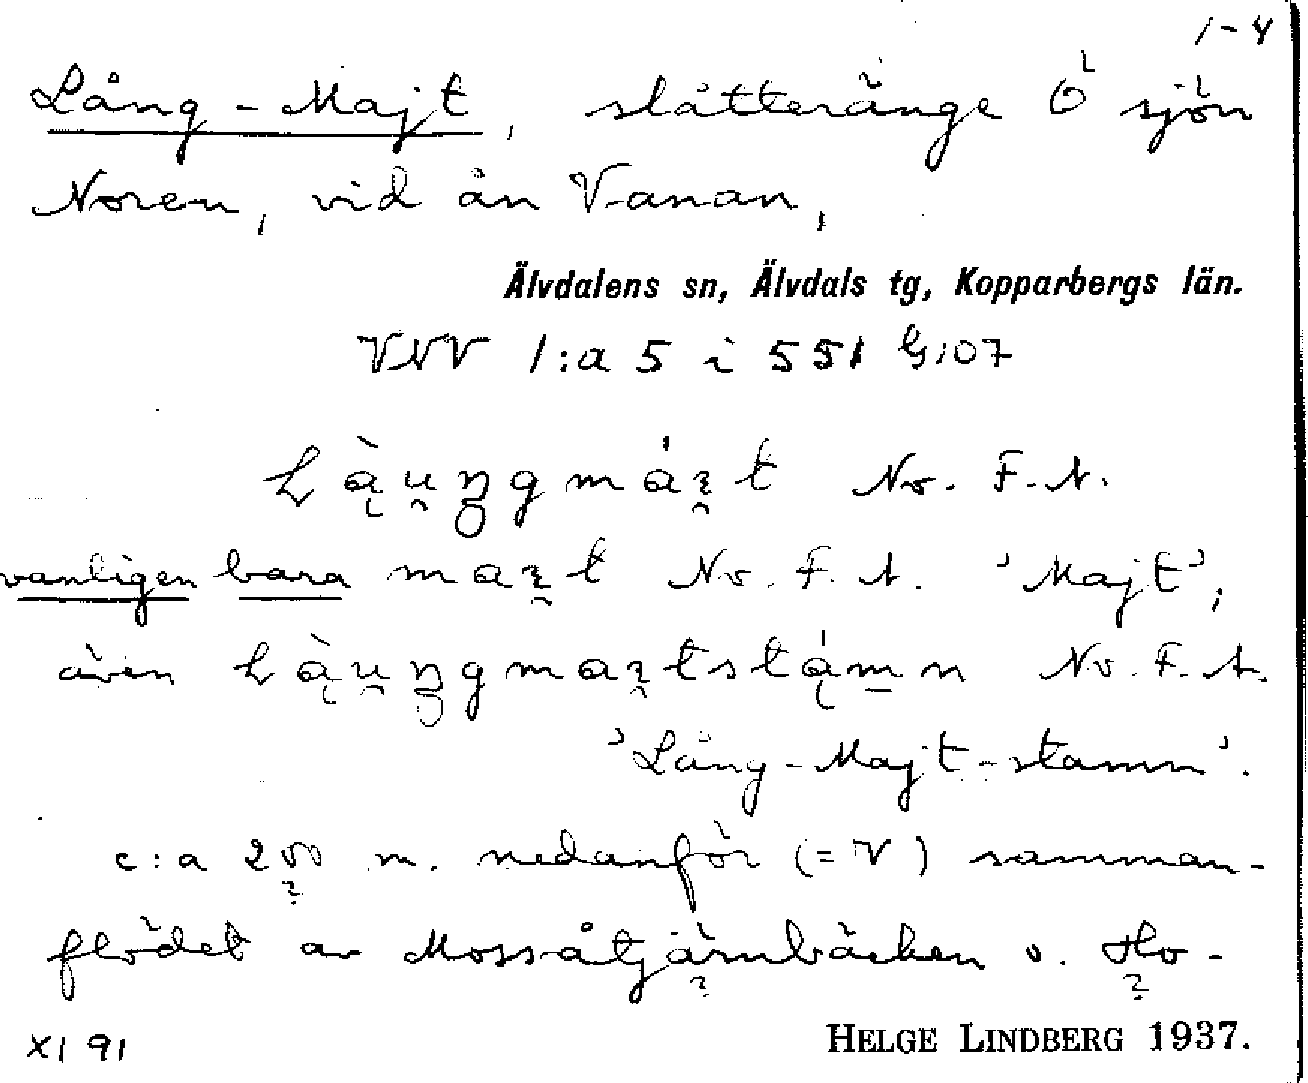 1-4
Lång-Majt, slåtteränge Ö sjön
Noren, vid ån Vanan,
Älvdalens sn, Älvdals tg, Kopparbergs län.
VNV 1:a 5 i 551 G;07
No. F.A.
vanligen bara No. F.A. 'Majt',
även No. F.A.
'Lång-Majt-stamn'.
c:a 200 m. nedanför (=V) samman-
flödet av Mossåtjärnbäcken o. Ho-
XI 91
HELGE LINDBERG 1937.